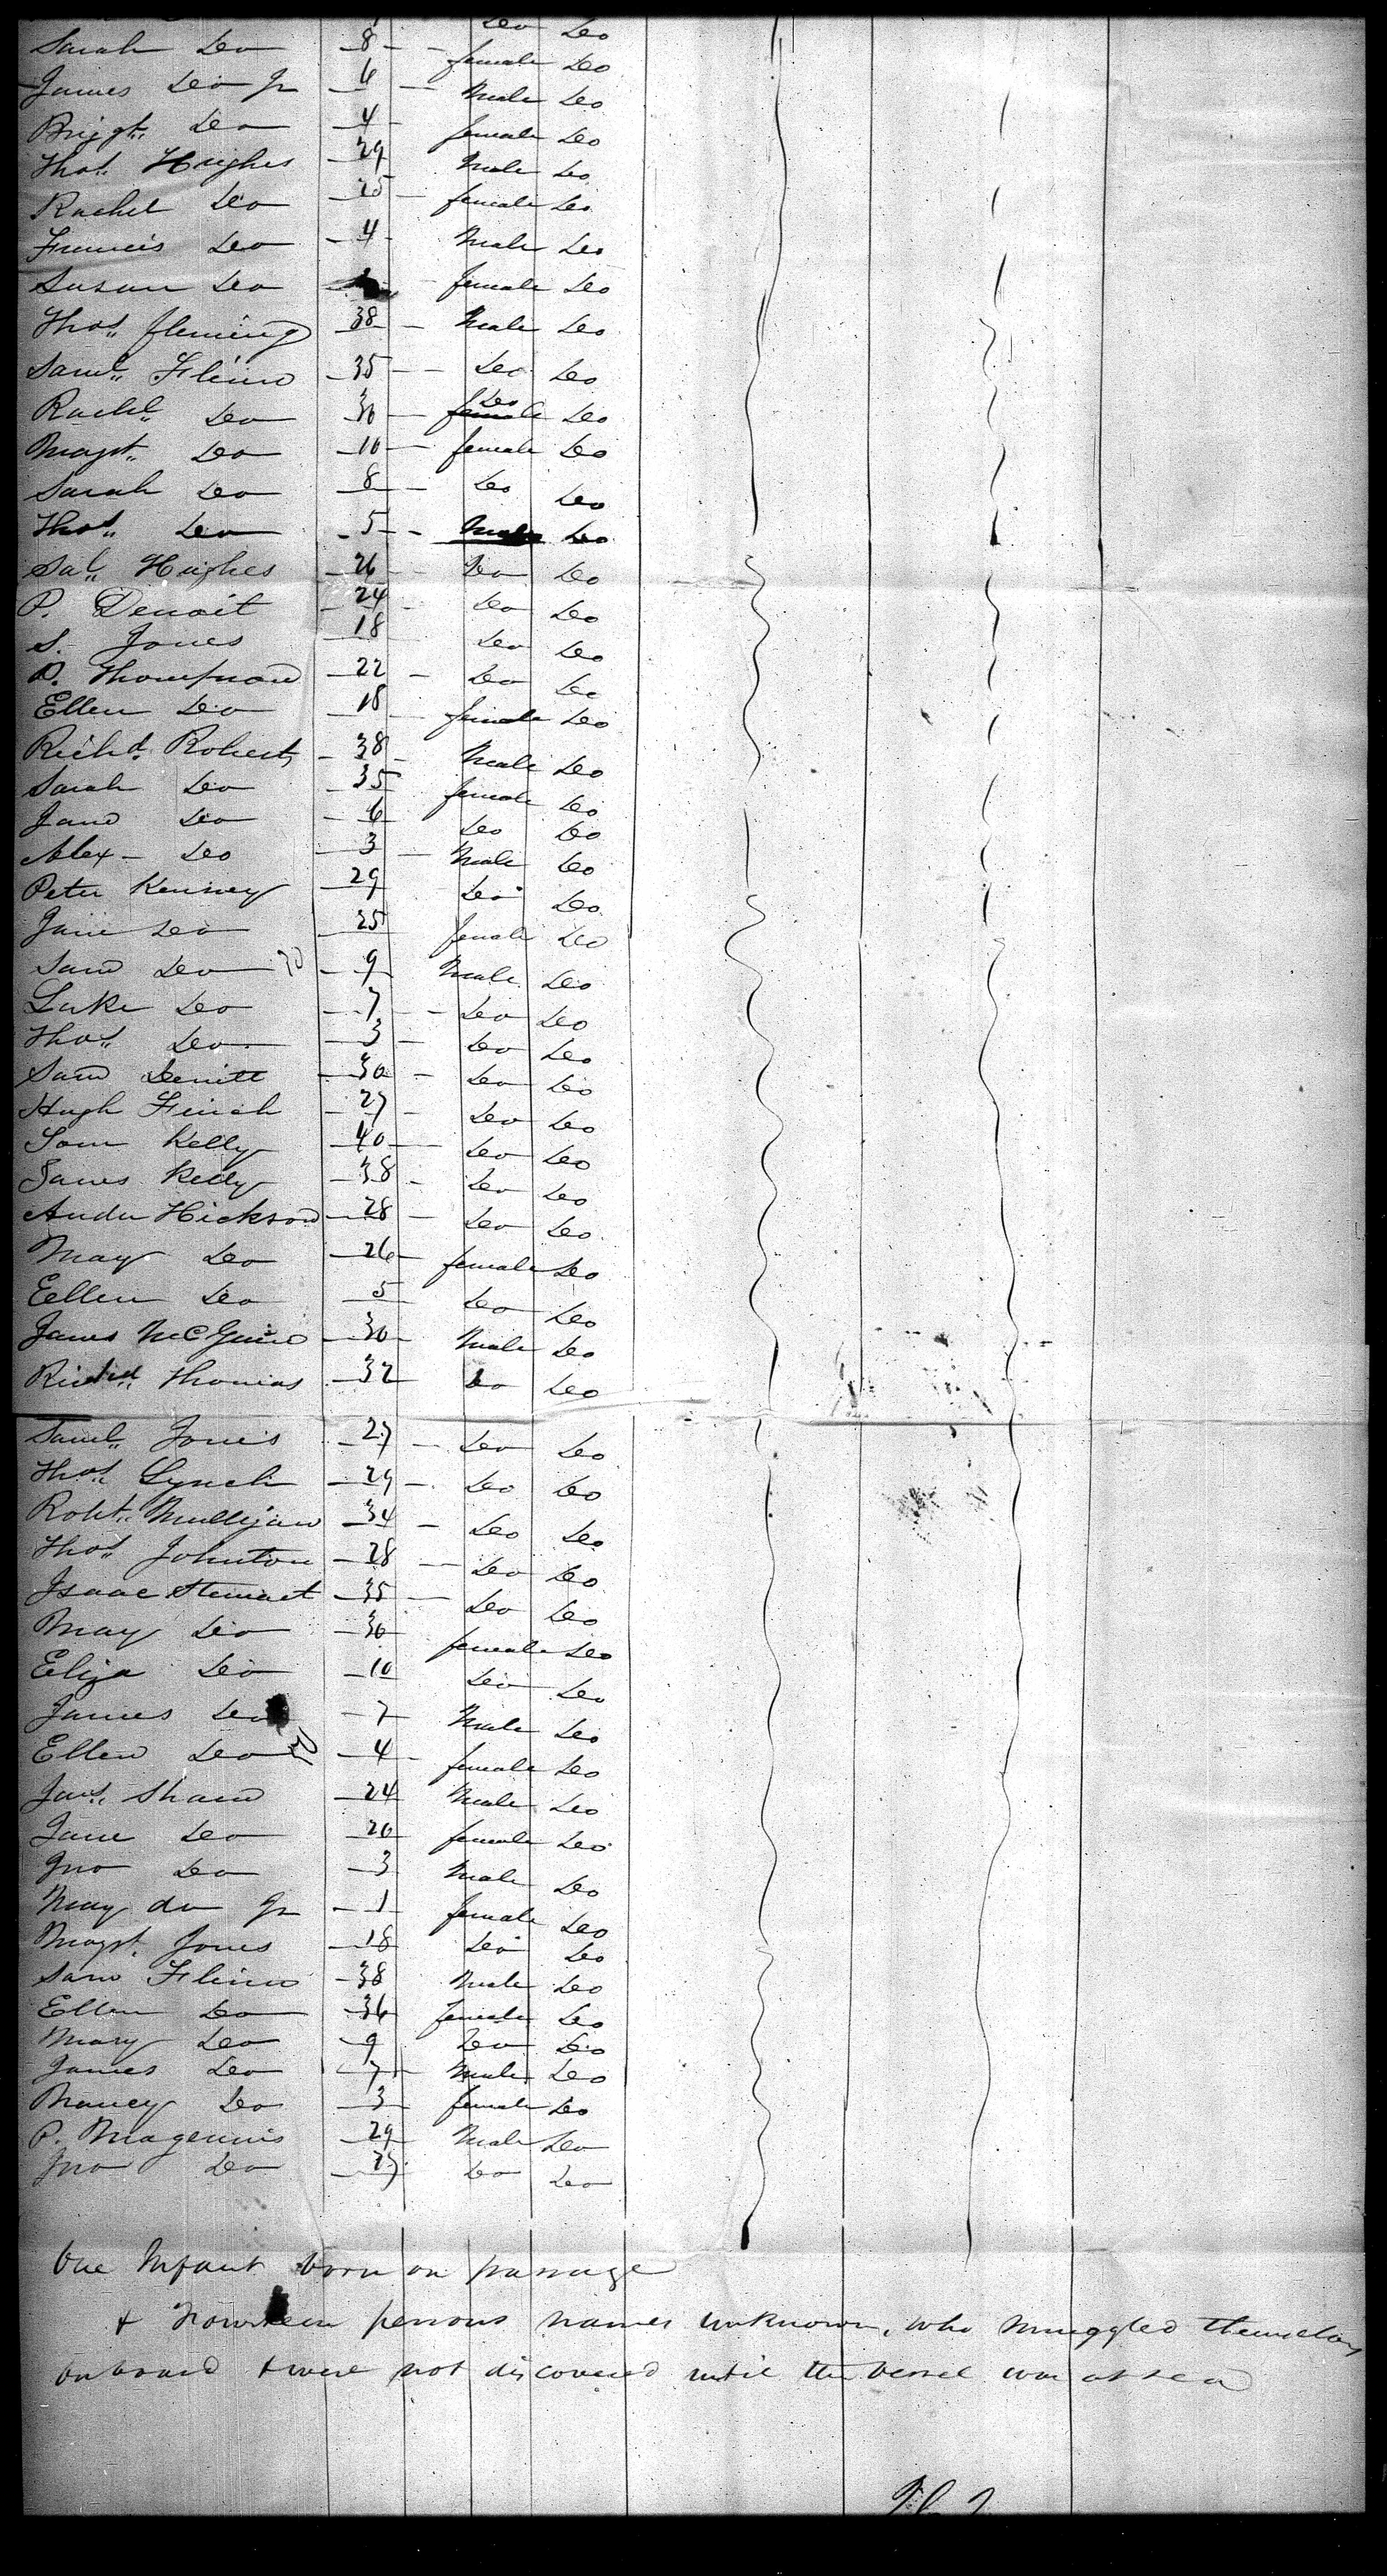 Do Do
Sarah Do 8 female Do
James Do Jr 6 Male Do
Bridgt. Do 4 female Do
Thos. Hughes 29 Male Do
Rachel Do 25 female Do
Francis Do 4 Male Do
Susan Do female Do
Thos. Fleming 38 Male Do
Saml. Flinn 35 Do Do
Rachl. Do 30 Do Do
Margt. Do 10 female Do
Sarah Do 8 Do Do
Thos. Do 5 Male Do
Sal. Hughes 26 Do Do
P. Denoit 24 Do Do
S. Jones 18 Do Do
P. Thompson 22 Do Do
Ellen Do 18 female Do
Richd. Roberts 38 Male Do
Sarah Do 35 female Do
Jane Do 6 Do Do
Alex Do 3 Male Do
Peter Kenney 29 Do Do
Jane Do 25 female Do
Sam Do 9 Male Do
Luke Do 7 Do Do
Thos. Do 3 Do Do
Sam Devitt 30 Do Do
Hugh Finch 27 Do Do
Tom Kelly 40 Do Do
James Kelly 38 Do Do
Andw Hickson 28 Do Do
Mary Do 26 female Do
Eellen Do 5 Do Do
James McGuire 30 Male Do
Richd. Thomas 32 Do Do
Saml. Jones 27 Do Do
Thos. Lynch 29 Do Do
Robt. Mulligan 34 Do Do
Thos. Johnton 28 Do Do
Isaac Stewart 35 Do Do
Mary Do 30 female Do
Eliza Do 10 Do Do
James Do 7 Male Do
Ellen Do 4 female Do
Jas. Shaw 24 Male Do
Jane Do 20 female Do
Jno Do 3 Male Do
Mary do Jr 1 female Do
Margt. Jones 18 Do Do
Sam Flinn 38 Male Do
Ellen Do 36 female Do
Mary Do 9 Do Do
James Do 7 Male Do
Nancy Do 3 female Do
P. Magennis 29 Male Do
Jno Do 27 Do Do
One Infant born on passage
& fourteen persons names unknown, who smuggled themselves
onboard & were not discovered until the vessel was at sea